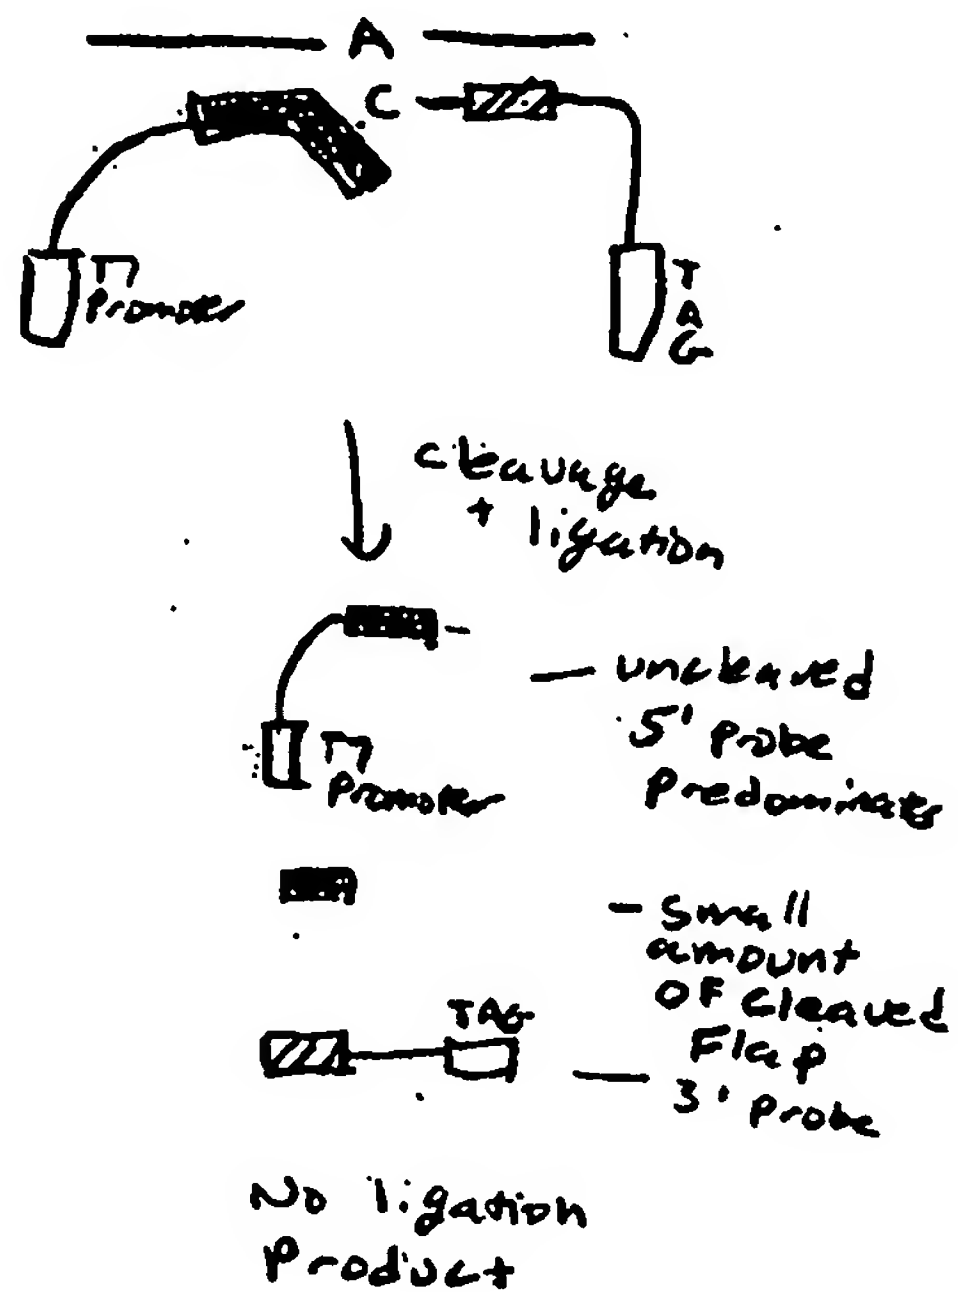 A
C
T7
Promoter
T
A
G
cleavage
+ ligation
uncleaved
5' probe
predominates
T7
Promoter
small
amount
OF cleaved
Flap
TAG
3' probe
No ligation
Product